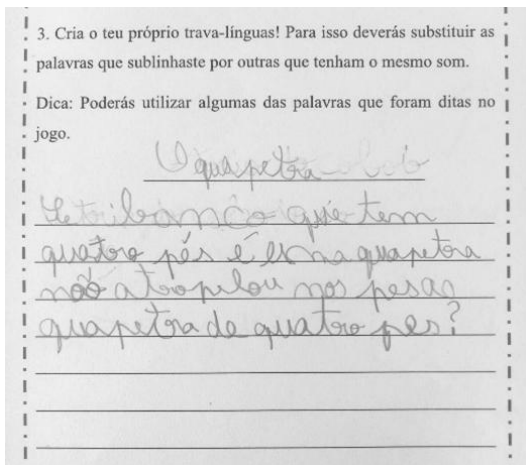 3. Cria o teu próprio trava-línguas! Para isso deverás substituir as
palavras que sublinhaste por outras que tenham o mesmo som.
Dica: Poderás utilizar algumas das palavras que foram ditas no
jogo.
O quapetra
banco que tem
quatro pés é quapetra
não atropelou nos pesas
quapetra de quatro pes?